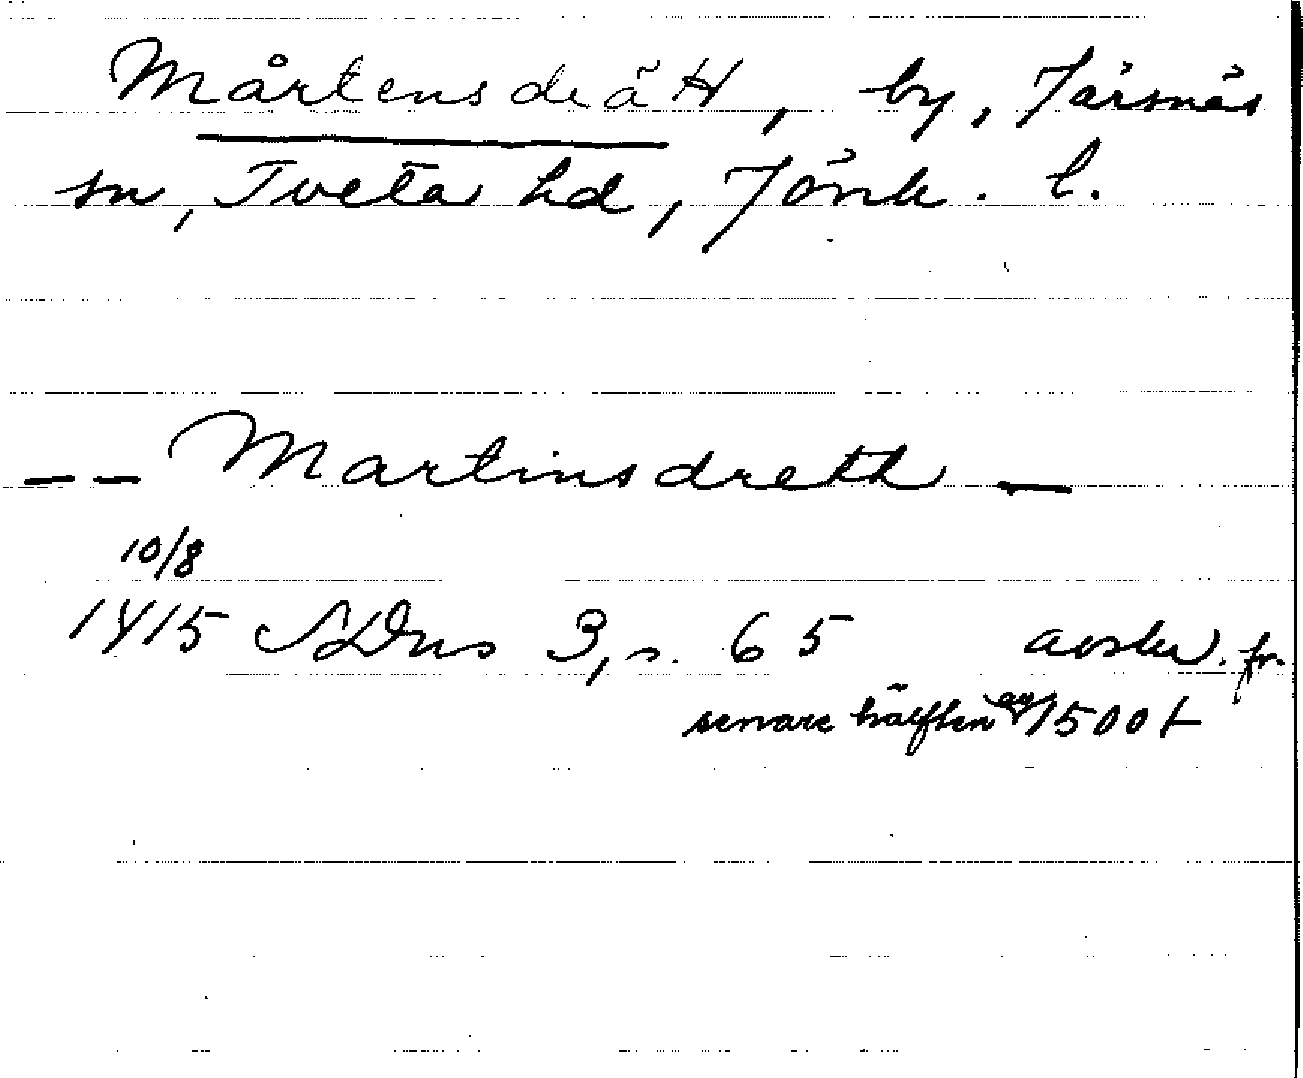 Mårtensdrätt, by, Järsnäs
sn, Tveta hd, Jönk. l.
-- Martinsdreth -
10/8
1415 SDns 3, s. 65 avskr. fr.
senare hälften av 1500 t